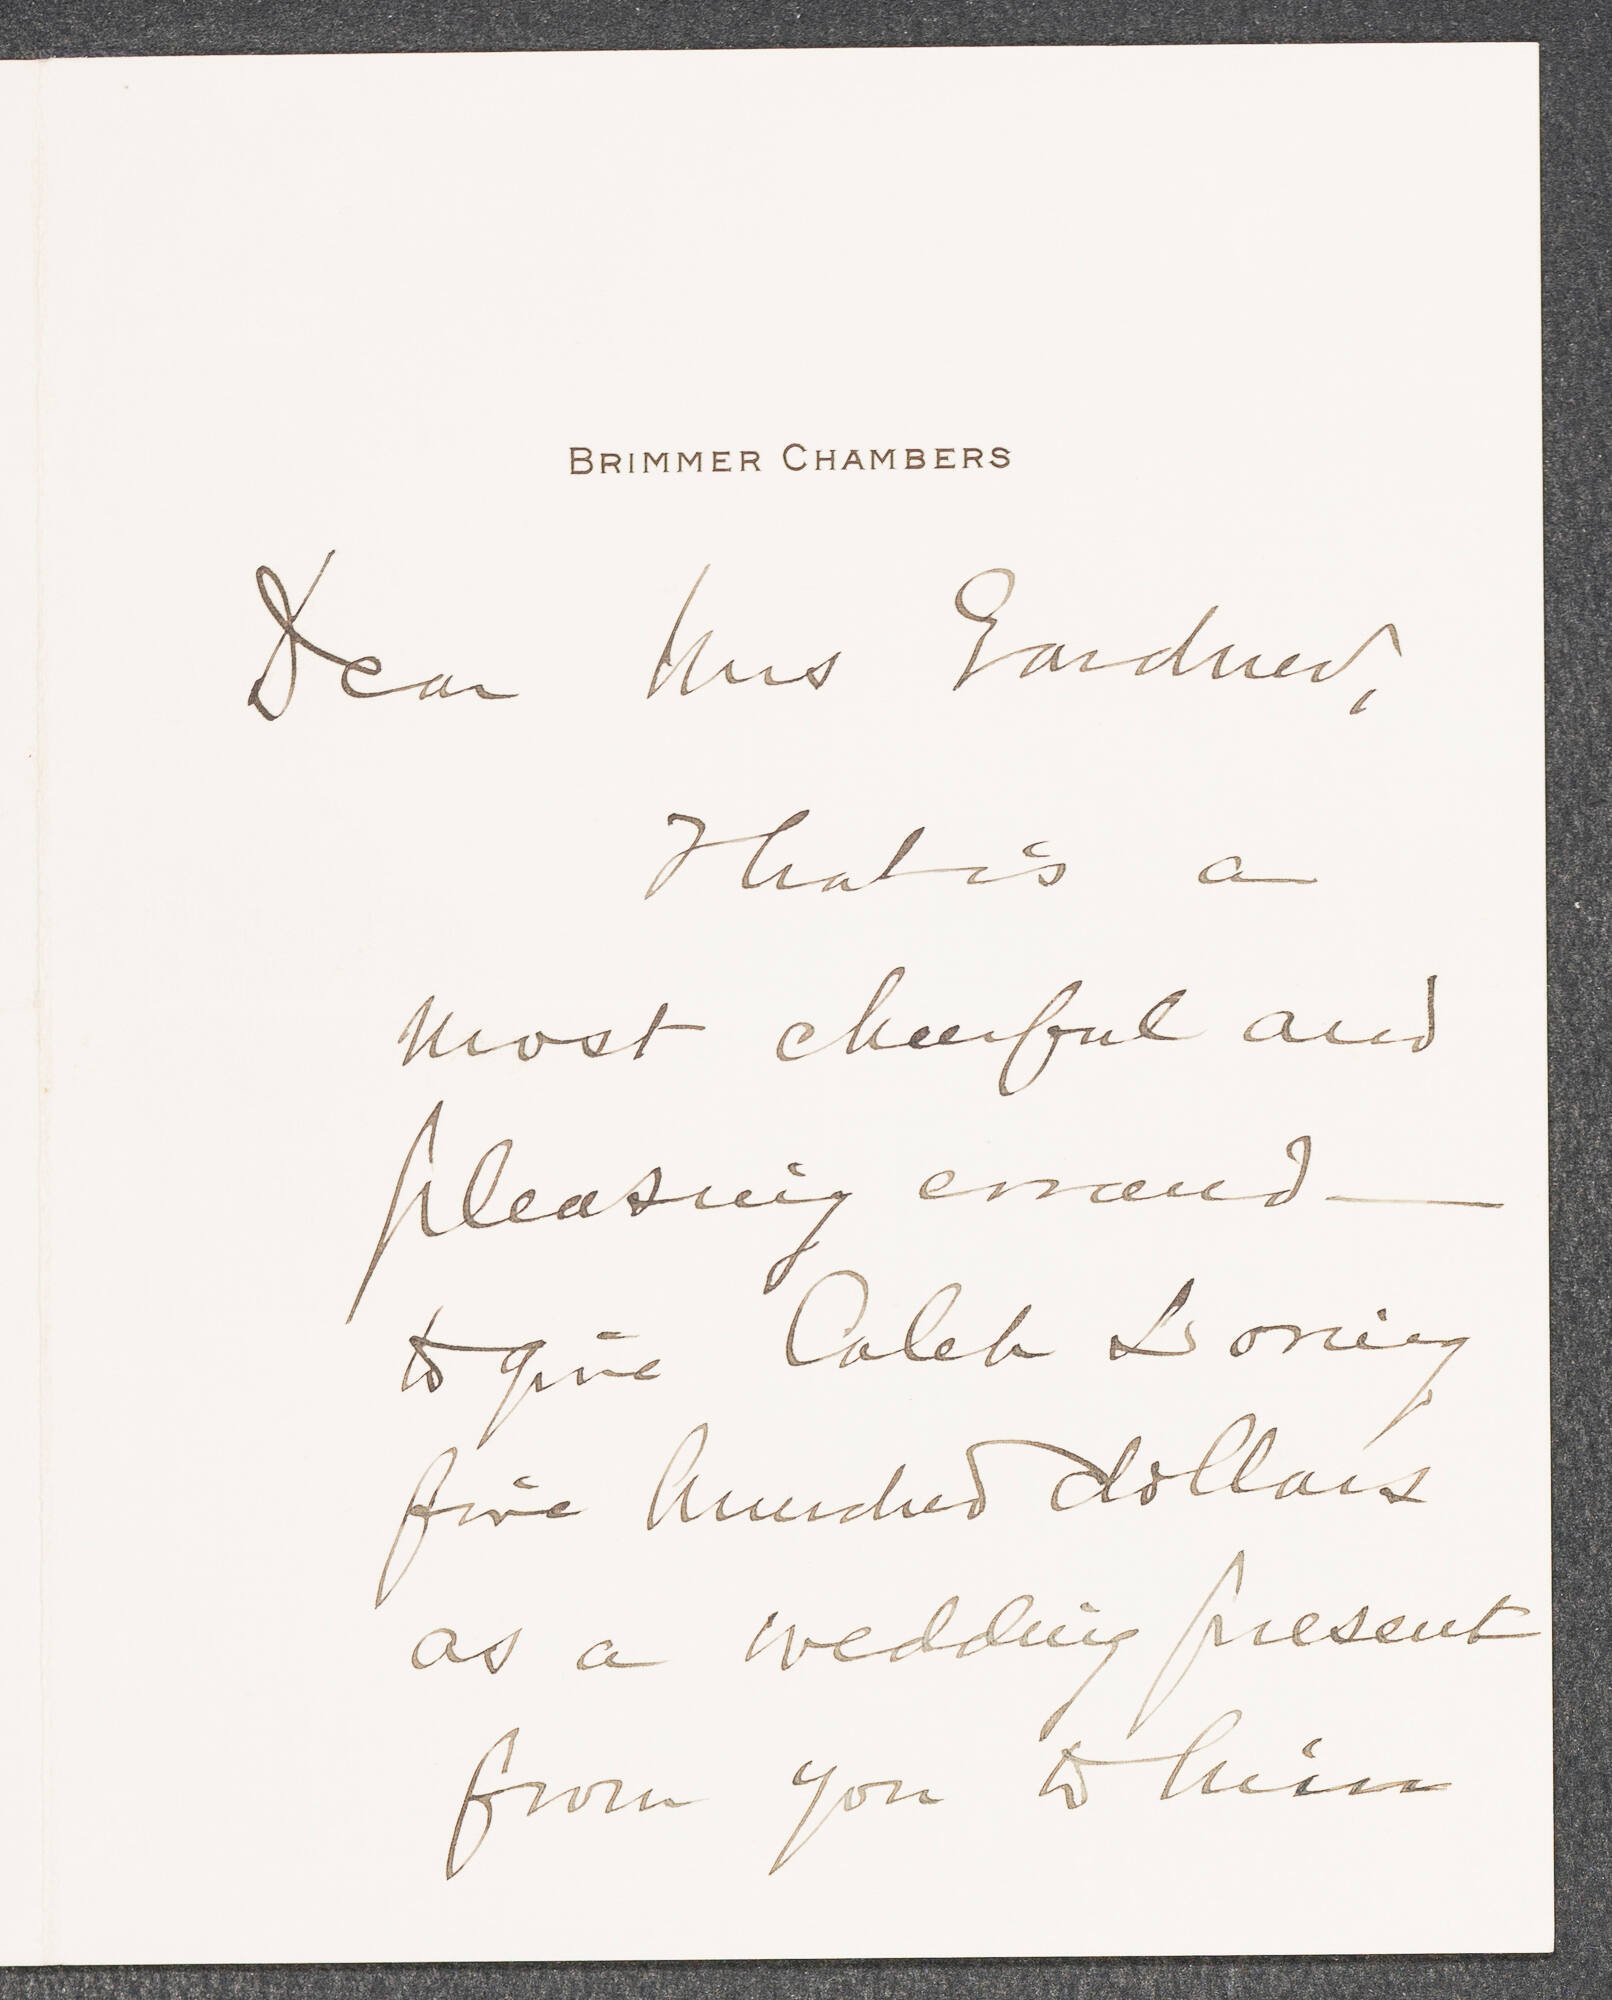 BRIMMER CHAMBERS
Dear Mrs Gardner,
That is a
most cheerful and
pleasing errand —
to give Caleb Loring
five hundred dollars
as a wedding present
from you to him